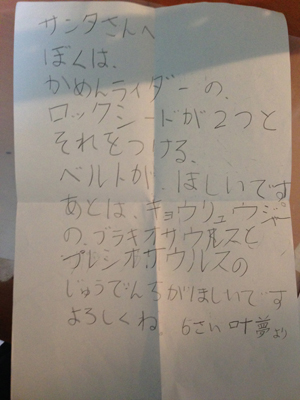 サンタさんへ
ぼくは、
かめんライダーの、
ロックシードが2つと
それをつける、
ベルトが、ほしいです
あとは、キョウリュウジャー
の、ブラキオサウルスと
プレシオサウルスの
じゅうでんちがほしいです
よろしくね 6さい 叶夢より